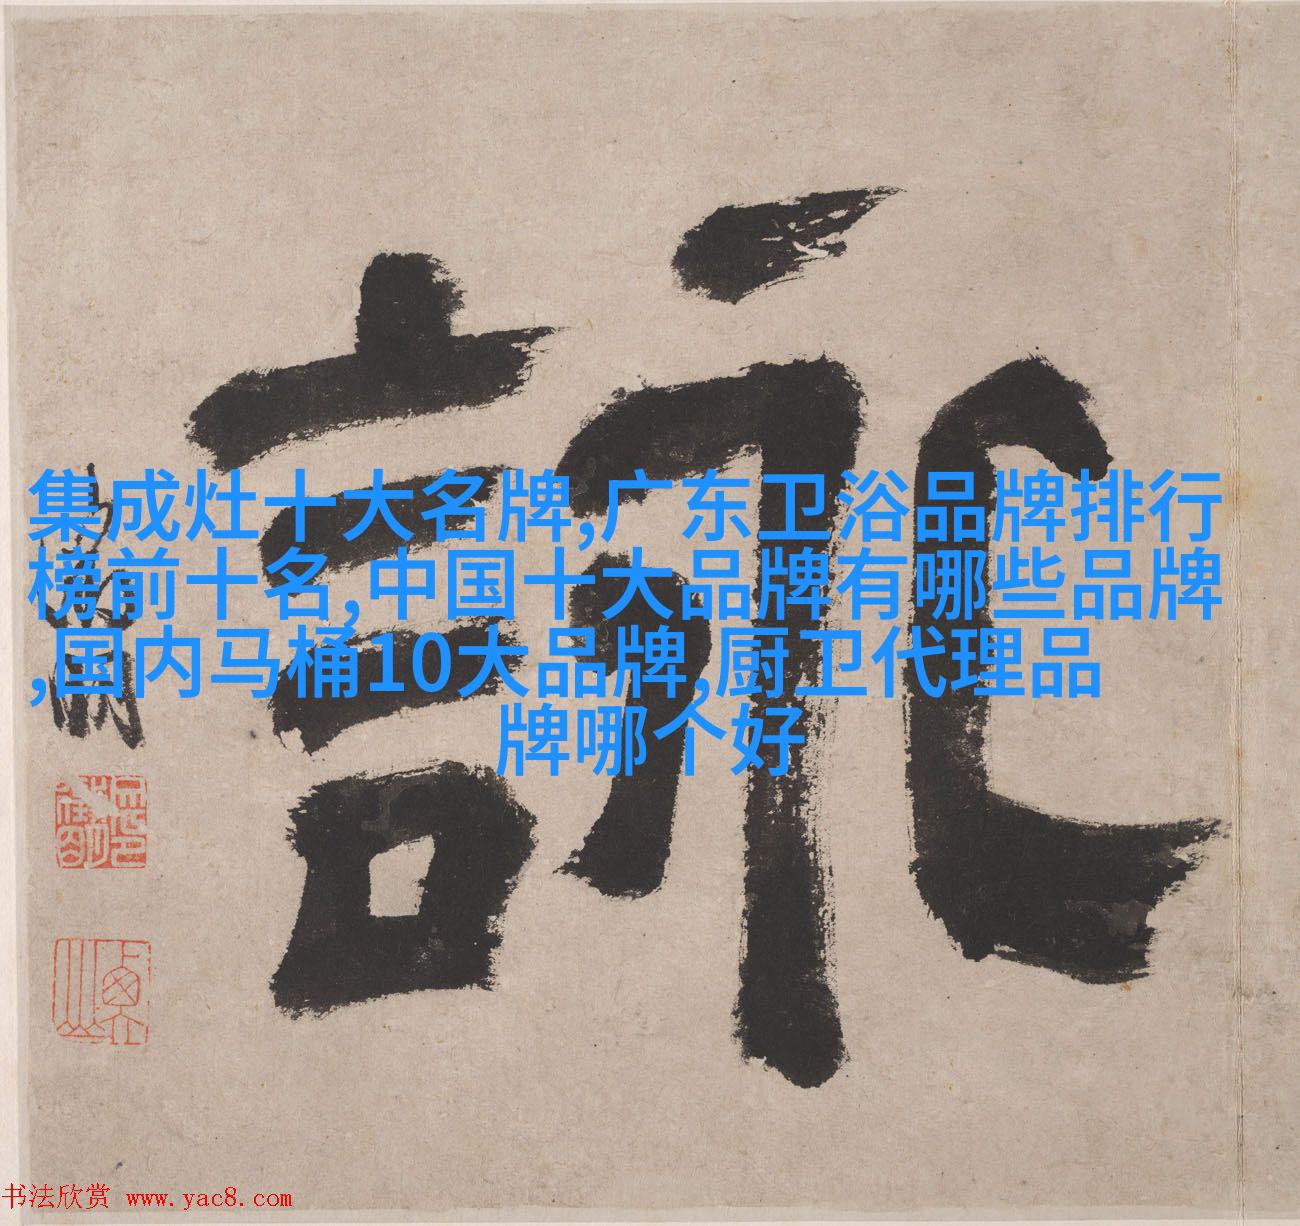 詠
集成灶十大名牌,广东卫浴品牌排行
榜前十名,中国十大品牌有哪些品牌
,国内马桶10大品牌,厨卫代理品
牌哪个好
书法欣赏 www.yac8.com